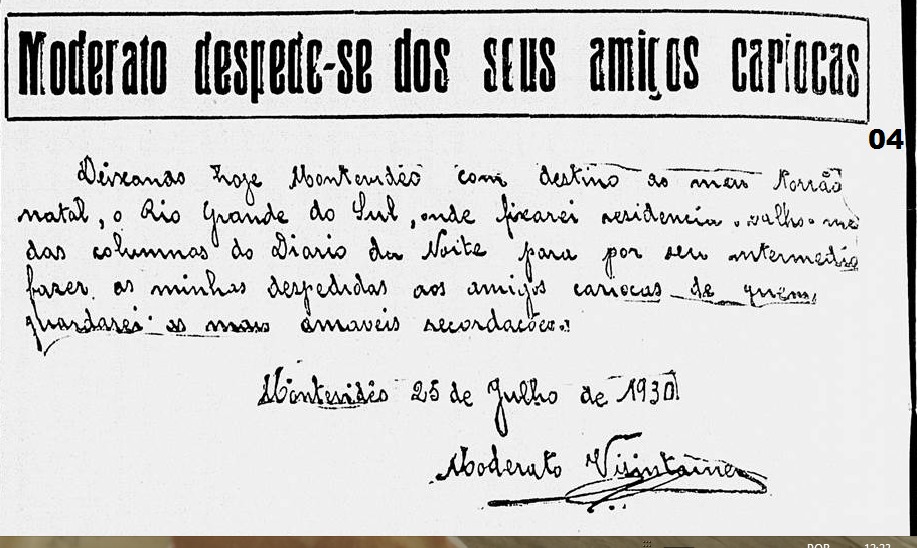 Moderato despede-se dos seus amigos cariocas
04
Deixando hoje Montevidéo com destino ao meu torrão
natal, o Rio Grande do Sul, onde fixarei residencia, valho-me
das columnas do Diario da Noite para por seu intermedio
fazer as minhas despedidas aos amigos cariocas de quem
guardarei as mais amaveis recordações.
Montevidéo 25 de Julho de 1930
Moderato
POR 12:22